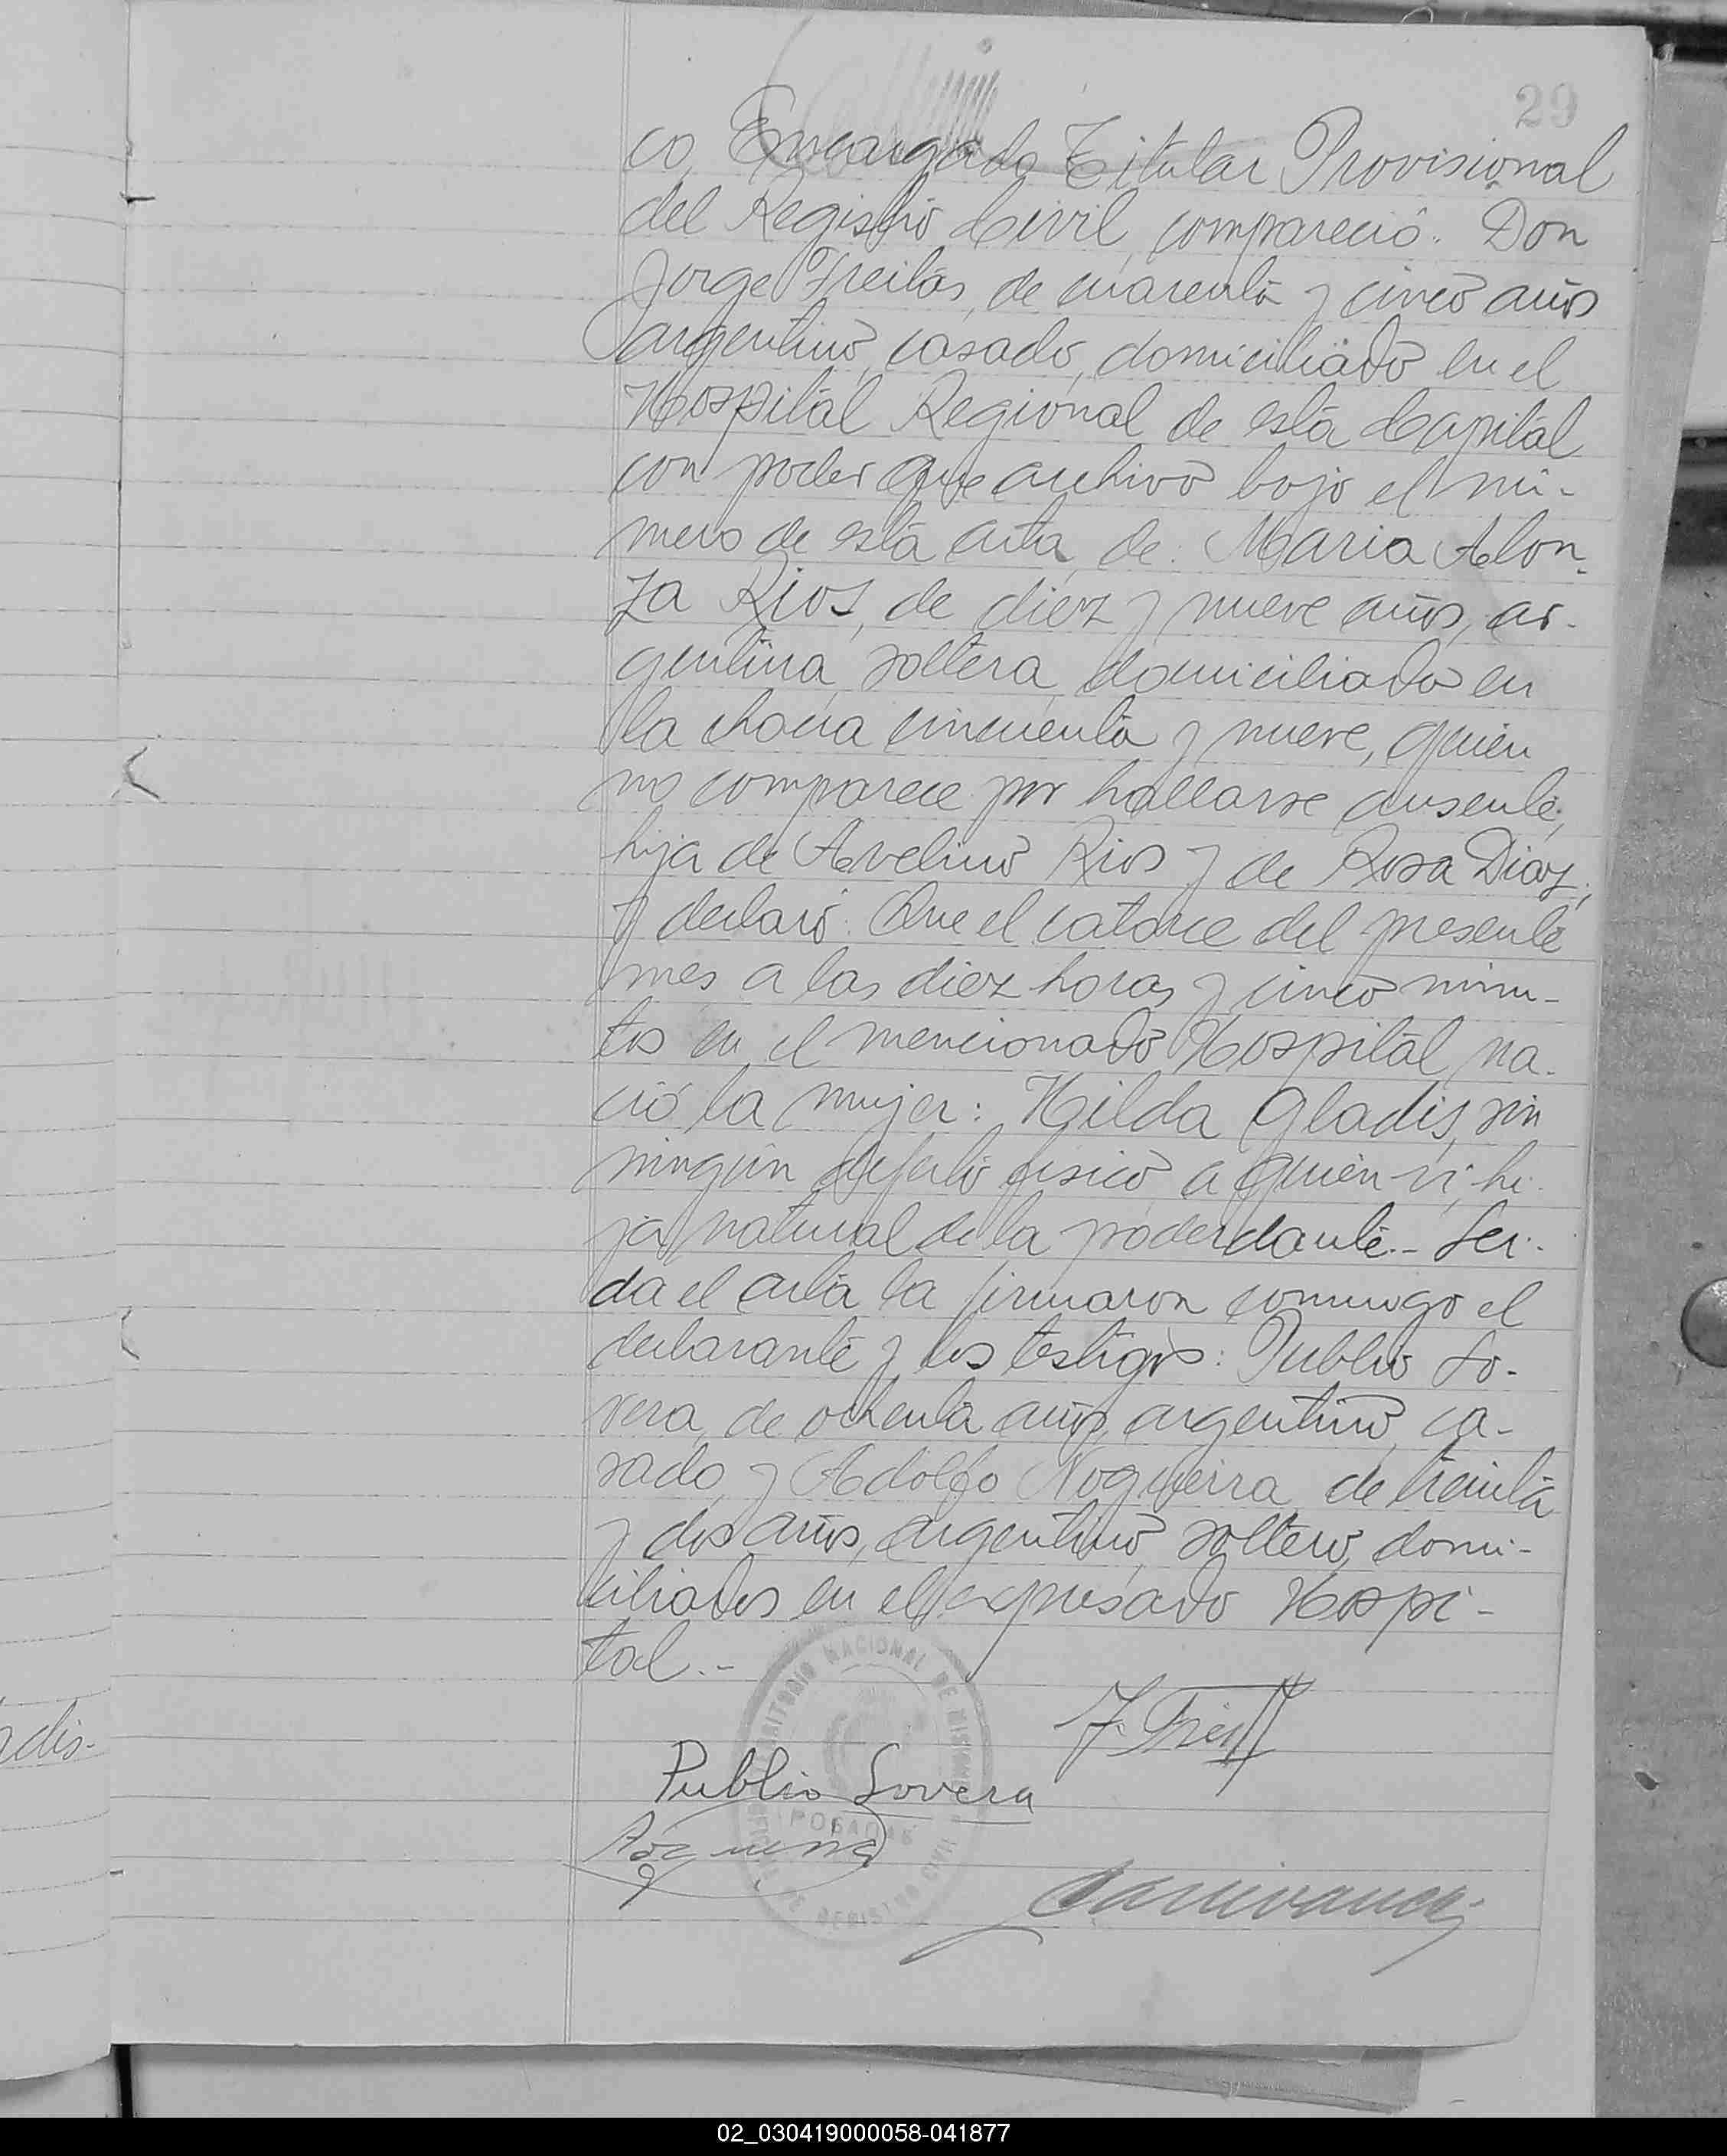 29
co, Encargado Titular Provisional
del Registro Civil, compareció: Don
Jorge Freitas, de cuarenta y cinco años
argentino, casado, domiciliado en el
Hospital Regional de esta Capital
con poder que archivo bajo el nú-
mero de esta acta, de: Maria Alon-
za Rios, de diez y nueve años, ar-
gentina, soltera, domiciliado en
la chacra cincuenta y nueve, quien
no comparece por hallarse ausente,
hija de Avelino Rios y de Rosa Diaz;
y declaró: Que el catorce del presente
mes a las diez horas y cinco minu-
tos en el mencionado Hospital, na-
ció la mujer: Hilda Gladis, sin
ningún defecto fisico a quien ví, hi-
ja natural de la poderdante.- Lei-
da el acta la firmaron conmigo el
declarante y los testigos: Publio Lo-
vera, de ochenta años, argentino, ca-
sado y Adolfo Nogueira, de treinta
y dos años, argentino, soltero, domi-
ciliados en el expresado Hospi-
tal.-
TERRITORIO NACIONAL DE MISIONES
POSADAS
REGISTRO CIVIL
Publio Lovera
dis-
02_030419000058-041877